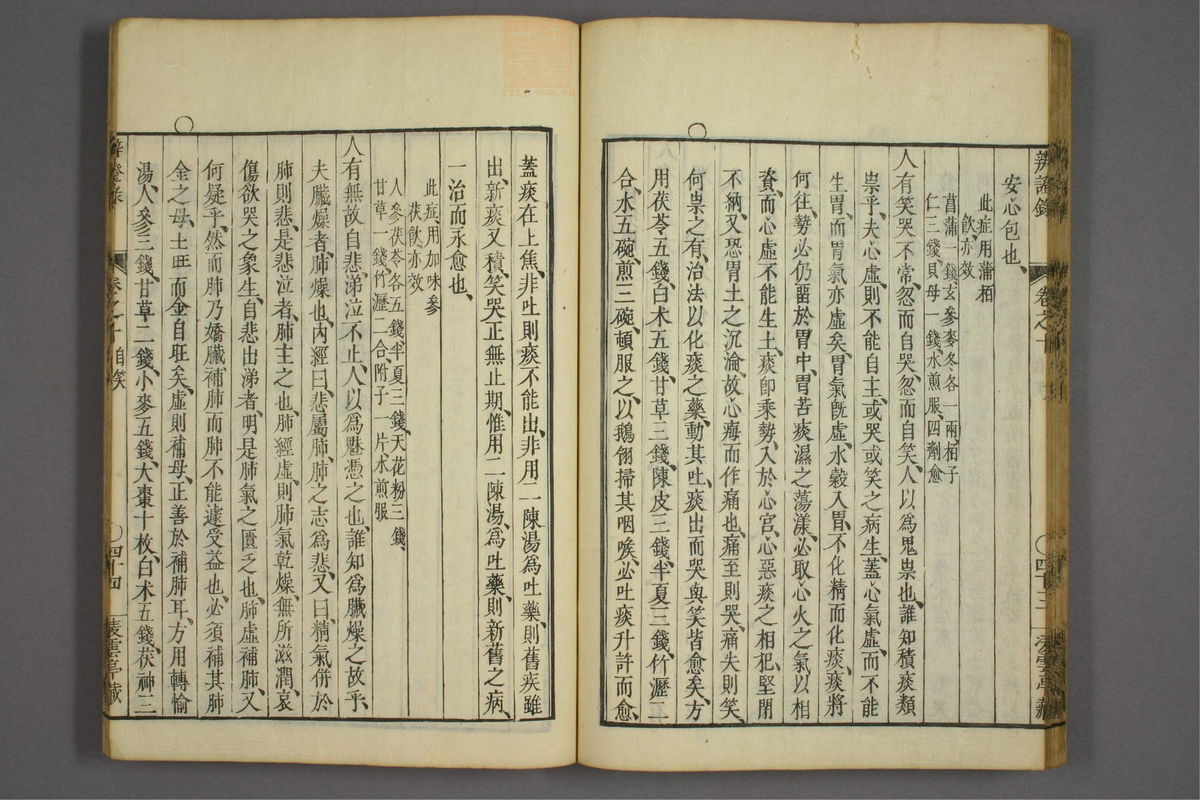 辨證錄 卷之十 四十三 凌雲亭藏
安心包也、
此症用蒲柏
飲亦效
菖蒲一錢玄參麥冬各一兩柏子
仁三錢貝母一錢水煎服四劑愈
人有笑哭不常、忽而自哭、忽而自笑、人以爲鬼祟也、誰知積痰類
祟乎、夫心虛則不能自主、或哭或笑之病生、蓋心氣虛、而不能
生胃、而胃氣亦虛矣、胃氣旣虛、水穀入胃、不化精而化痰、痰將
何往、勢必仍畱於胃中、胃苦痰濕之蕩漾、必取心火之氣以相
資、而心虛不能生土、痰卽乘勢、入於心宮、心惡痰之相犯、堅閉
不納、又恐胃土之沉淪、故心痗而作痛也、痛至則哭、痛失則笑、
何祟之有、治法以化痰之藥、動其吐、痰出而哭與笑皆愈矣、方
用茯苓五錢、白朮五錢、甘草三錢、陳皮三錢、半夏三錢、竹瀝二
合、水五碗、煎三碗、頓服之、以鵝翎掃其咽喉、必吐痰升許而愈、
蓋痰在上焦、非吐則痰不能出、非用二陳湯爲吐藥、則舊疾雖
出、新痰又積、笑哭正無止期、惟用二陳湯、爲吐藥、則新舊之病、
一治而永愈也、
此症用加味參
茯飲亦效
人參茯苓各五錢半夏三錢天花粉三錢、
甘草一錢竹瀝二合附子一片水煎服
人有無故自悲、涕泣不止、人以爲魅憑之也、誰知爲臟燥之故乎、
夫臟燥者、肺燥也、內經曰、悲屬肺、肺之志爲悲、又曰、精氣併於
肺則悲、是悲泣者、肺主之也、肺經虛、則肺氣乾燥、無所滋潤、哀
傷欲哭之象生、自悲出涕者、明是肺氣之匱乏也、肺虛補肺、又
何疑乎、然而肺乃嬌臟、補肺而肺不能遽受益也、必須補其肺
金之母、土旺而金自旺矣、虛則補母、正善於補肺耳、方用轉愉
湯、人參三錢、甘草二錢、小麥五錢、大棗十枚、白朮五錢、茯神三
辨證錄 卷之十 自笑 四十四 凌雲亭藏